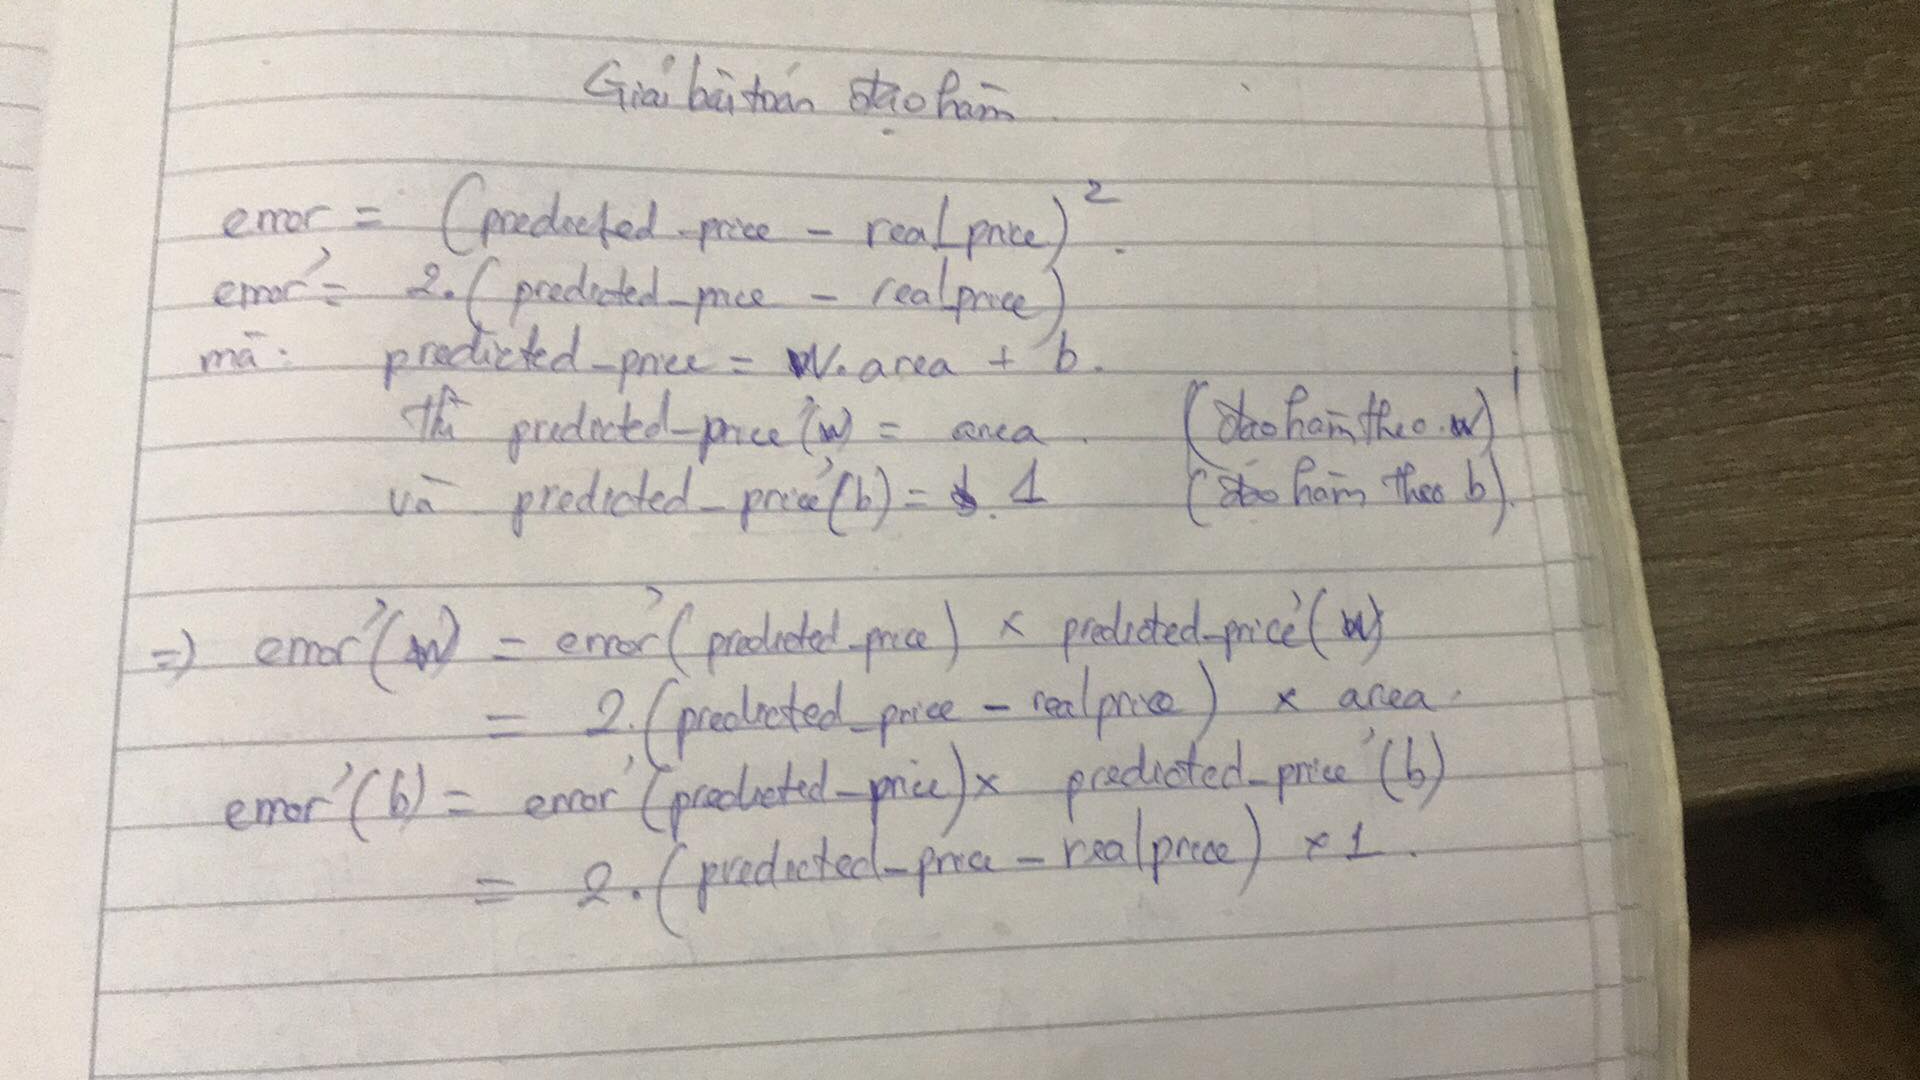 Giải bài toán đạo hàm
error = (predicted_price - real_price)².
error' = 2.(predicted_price - realprice)
mà: predicted_price = w.area + b.
thì predicted_price'(w) = area. (đạo hàm theo w)
và predicted_price'(b) = 1 (đạo hàm theo b).
=> error'(w) = error'(predicted_price) x predicted_price'(w)
= 2.(predicted_price - realprice) x area.
error'(b) = error'(predicted_price) x predicted_price'(b)
= 2.(predicted_price - realprice) x 1.